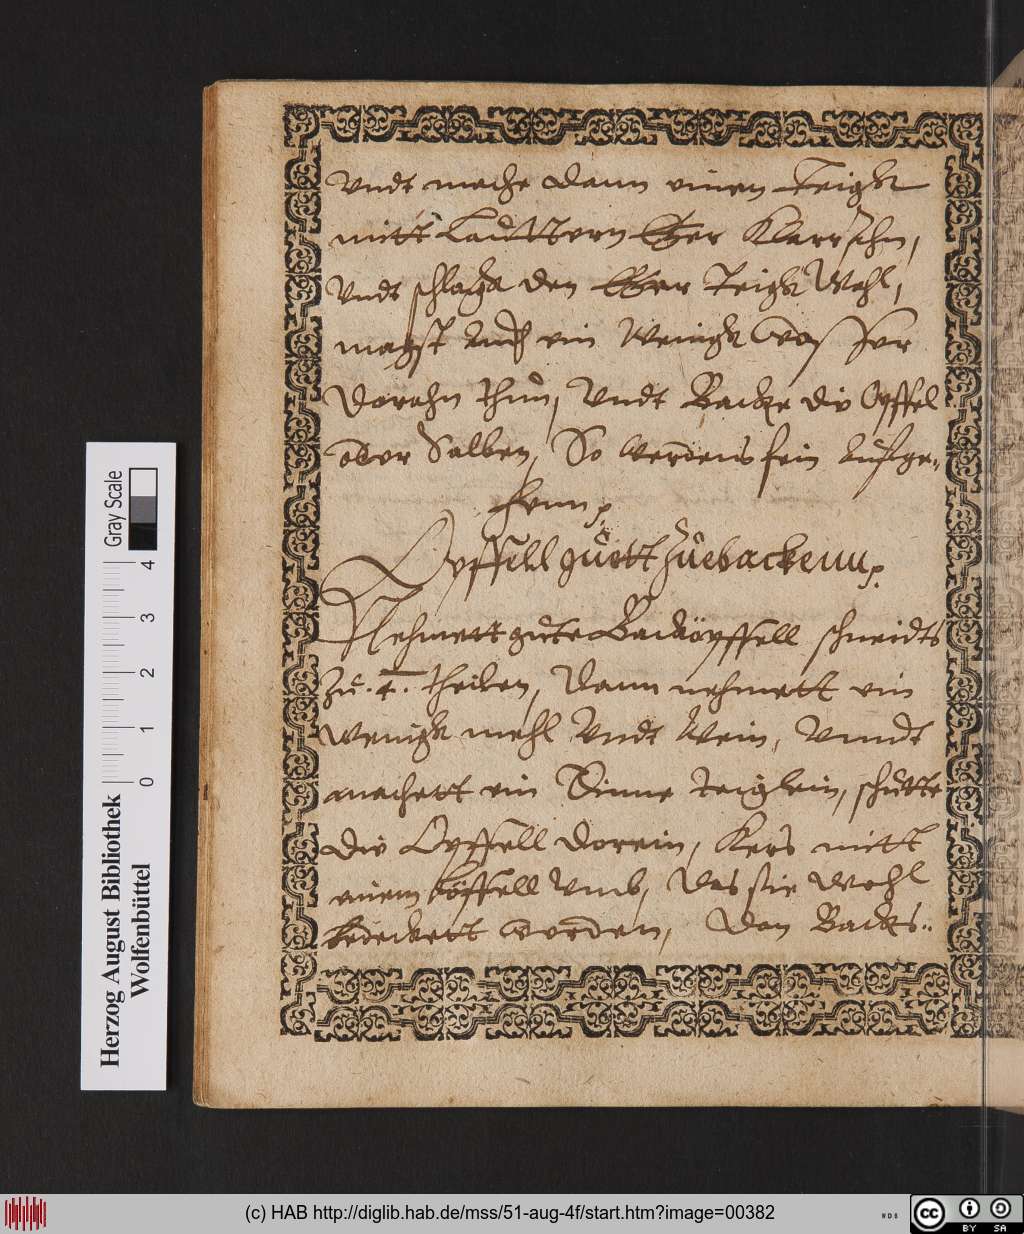 Vndt mache dann einen Teigk
mitt Lautttern Eÿer Klarr
Vndt schlagk den Eÿer Teigk Wohl,
magst Auch ein Wenigk
Dorahn thun, Vndt Backe die Öpffel
ober Salben, So werdens fein Aufge„
henn
Öpffell guett Zuebackenn
Nehmett gute Backöpffell schneidts
Zu . 4. theilen, Dann nehmett ein
wenigk mehl Vndt Wein, Vnndt
machett ein Dinne teiglein, schutte
die Öpffell dorein, Kers mitt
einem löffell Vmb, Das sie wohl
bedeckett worden, Dan Backs„
Herzog August Bibliothek
Wolfenbüttel
0 1 2 3 4
Gray Scale
(c) HAB http://diglib.hab.de/mss/51-aug-4f/start.htm?image=00382
WDB
cc BY SA